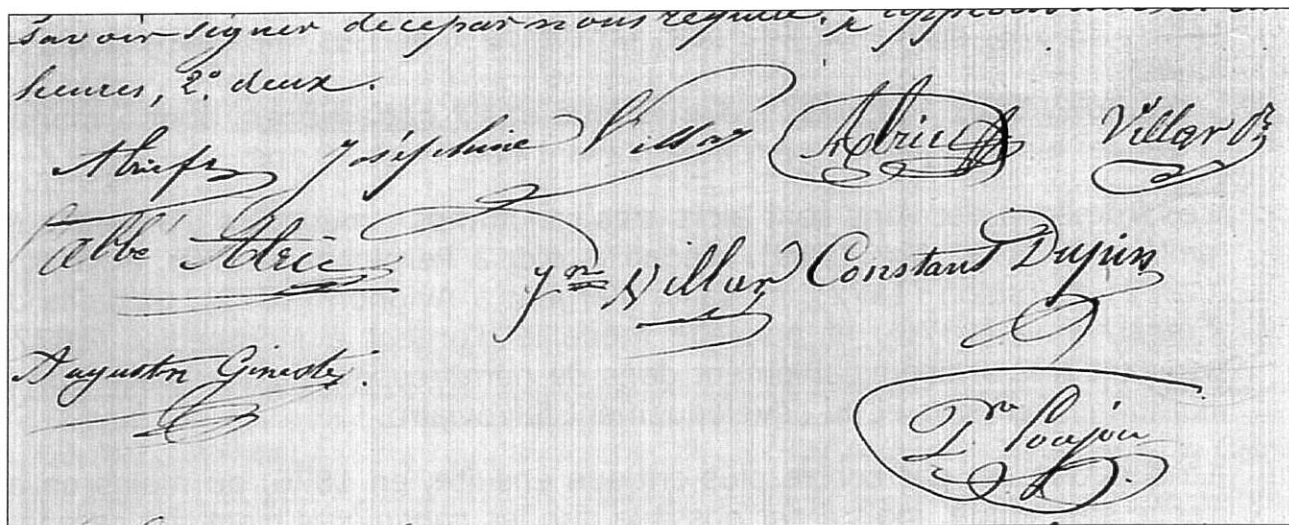 savoir signer de ce par nous requis.
heures, 2° deux.
Joséphine Villar Alric Villar
l'abbé Alric Jn Villar Constant Dupin
Augustin Gineste.